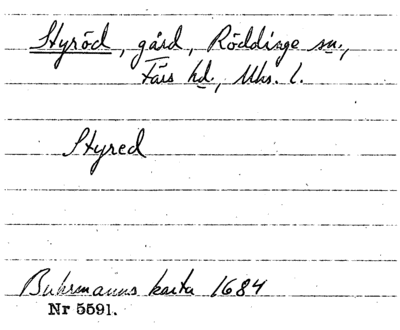 Styröd, gård, Röddinge sn.,
Färs hd., Mhs. l.
Styred
Buhrmanns karta 1684
Nr 5591.